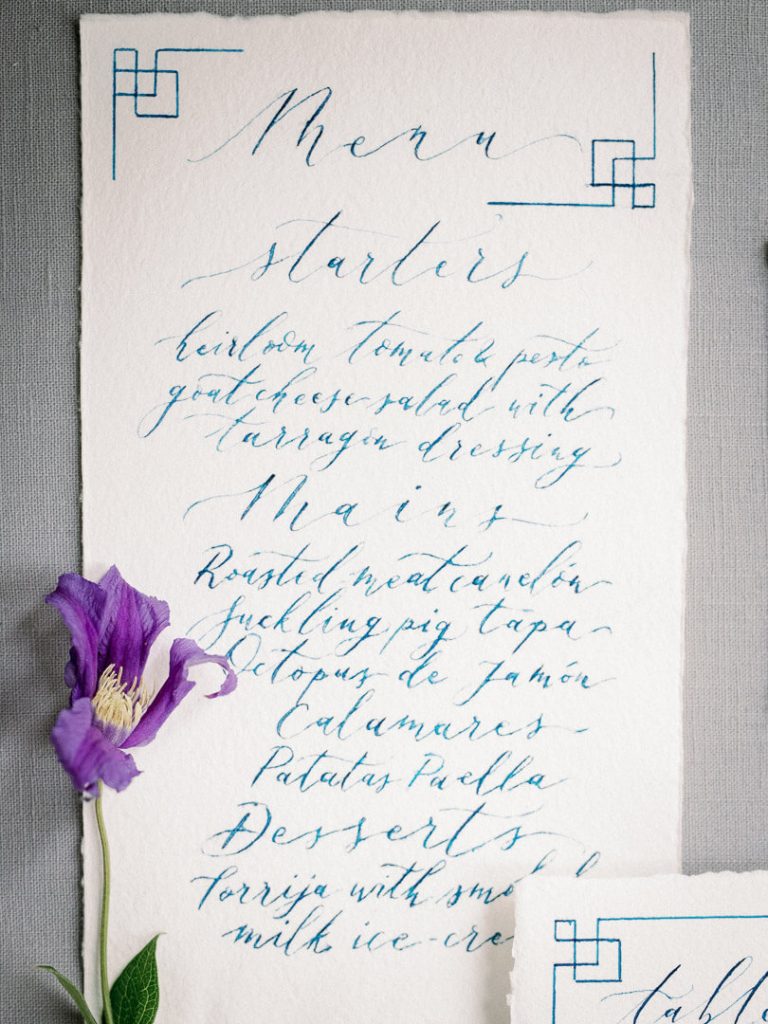 Menu
starters
heirloom tomato & pesto
goat cheese salad with
tarragon dressing
Mains
Roasted meat canelón
suckling pig tapa
Octopus de Jamón
Calamares
Patatas Paella
Desserts
Torrija with
milk ice-cre